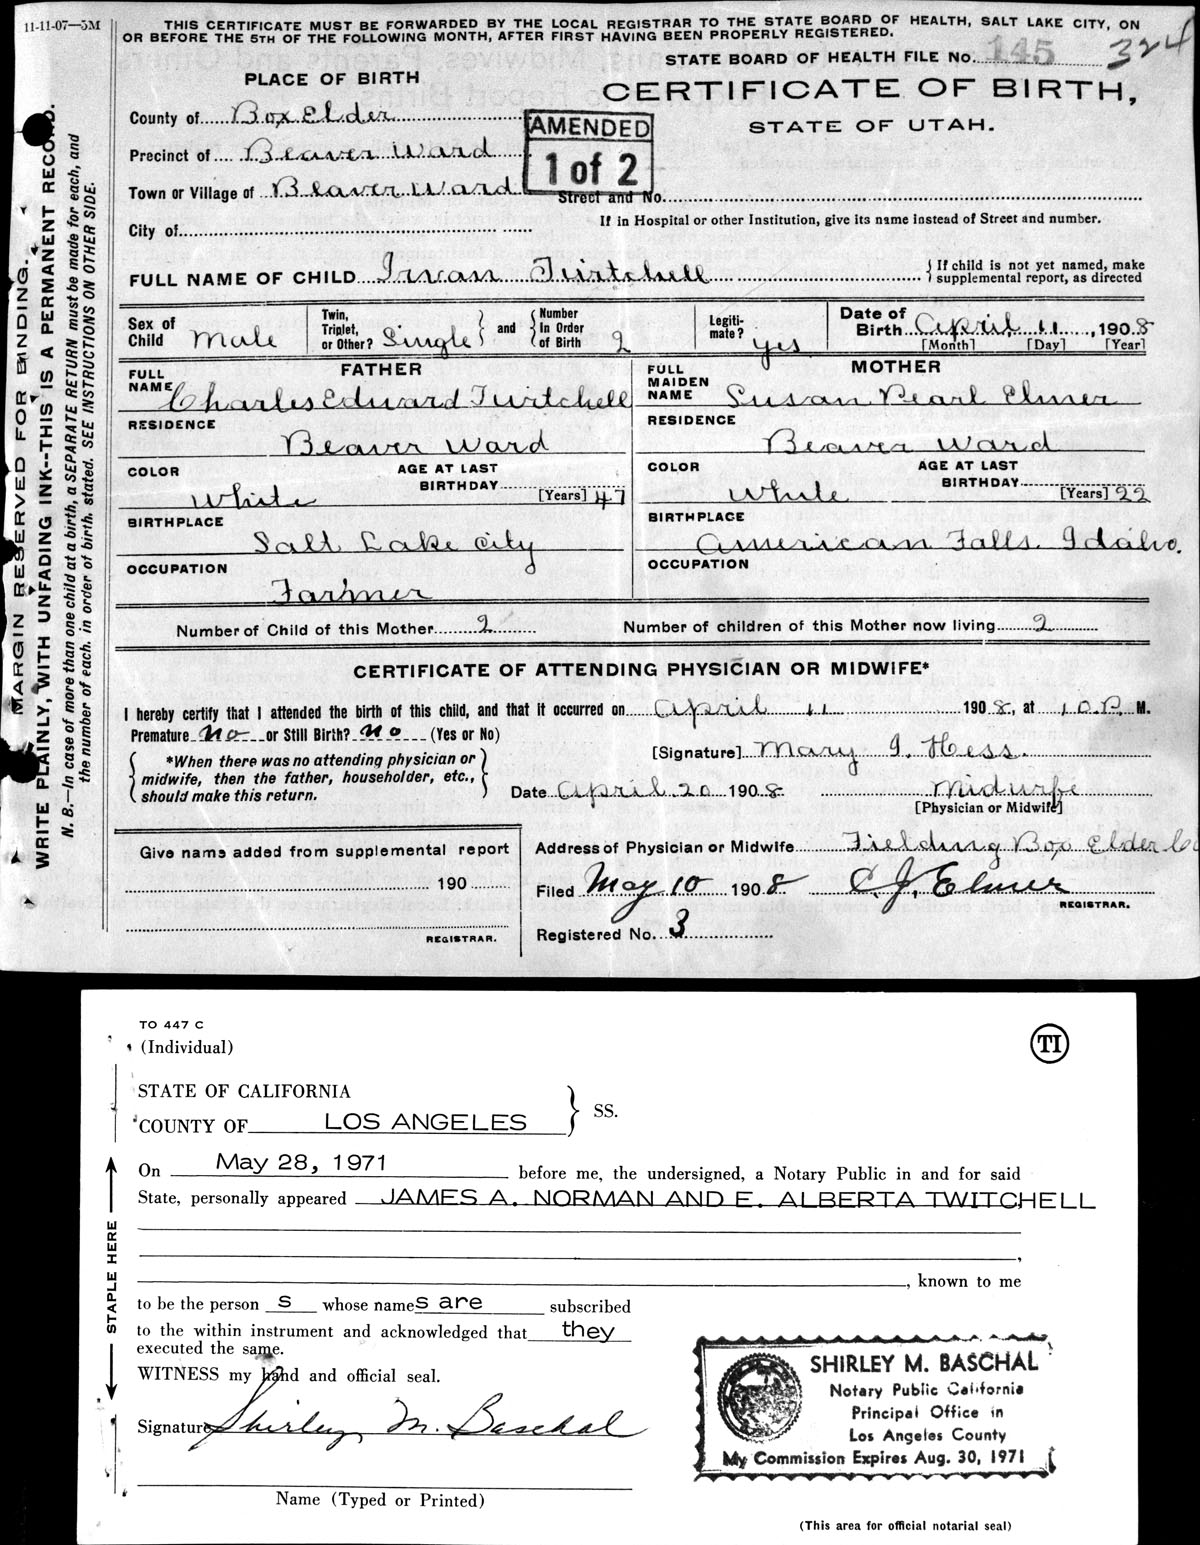 11-11-07—5M
THIS CERTIFICATE MUST BE FORWARDED BY THE LOCAL REGISTRAR TO THE STATE BOARD OF HEALTH, SALT LAKE CITY, ON
OR BEFORE THE 5TH OF THE FOLLOWING MONTH, AFTER FIRST HAVING BEEN PROPERLY REGISTERED.
STATE BOARD OF HEALTH FILE No. 145 324
PLACE OF BIRTH
CERTIFICATE OF BIRTH,
STATE OF UTAH.
County of Box Elder
AMENDED
1 of 2
Precinct of Beaver Ward
Town or Village of Beaver Ward
Street and No.
City of
If in Hospital or other Institution, give its name instead of Street and number.
FULL NAME OF CHILD Irvan Twitchell
{If child is not yet named, make
supplemental report, as directed
Sex of Child Male
Twin, Triplet, or Other? Single } and { Number In Order of Birth 2
Legiti-mate? yes
Date of Birth April 11, 1908
[Month] [Day] [Year]
FATHER
FULL NAME Charles Edward Twitchell
RESIDENCE
Beaver Ward
COLOR White
AGE AT LAST BIRTHDAY [Years] 47
BIRTHPLACE
Salt Lake City
OCCUPATION
Farmer
MOTHER
FULL MAIDEN NAME Susan Pearl Elmer
RESIDENCE
Beaver Ward
COLOR White
AGE AT LAST BIRTHDAY [Years] 22
BIRTHPLACE
American Falls. Idaho.
OCCUPATION
Number of Child of this Mother 2
Number of children of this Mother now living 2
CERTIFICATE OF ATTENDING PHYSICIAN OR MIDWIFE*
I hereby certify that I attended the birth of this child, and that it occurred on April 11 1908, at 10 P. M.
Premature No or Still Birth? No (Yes or No)
{ *When there was no attending physician or
midwife, then the father, householder, etc.,
should make this return. }
[Signature] Mary I. Hess.
Date April 20 1908 Midwife
[Physician or Midwife]
Give name added from supplemental report
190
REGISTRAR.
Address of Physician or Midwife Fielding Box Elder Co
Filed May 10 1908 C. J. Elmer
REGISTRAR.
Registered No. 3
MARGIN RESERVED FOR BINDING.
WRITE PLAINLY, WITH UNFADING INK--THIS IS A PERMANENT RECORD.
N. B.—In case of more than one child at a birth, a SEPARATE RETURN must be made for each, and
the number of each, in order of birth, stated. SEE INSTRUCTIONS ON OTHER SIDE.
TO 447 C
(Individual)
TI
STATE OF CALIFORNIA
COUNTY OF LOS ANGELES } SS.
On May 28, 1971 before me, the undersigned, a Notary Public in and for said
State, personally appeared JAMES A. NORMAN AND E. ALBERTA TWITCHELL
, known to me
to be the person s whose names are subscribed
to the within instrument and acknowledged that they
executed the same.
WITNESS my hand and official seal.
Signature Shirley M. Baschal
Name (Typed or Printed)
STAPLE HERE
SHIRLEY M. BASCHAL
Notary Public California
Principal Office in
Los Angeles County
My Commission Expires Aug. 30, 1971
(This area for official notarial seal)